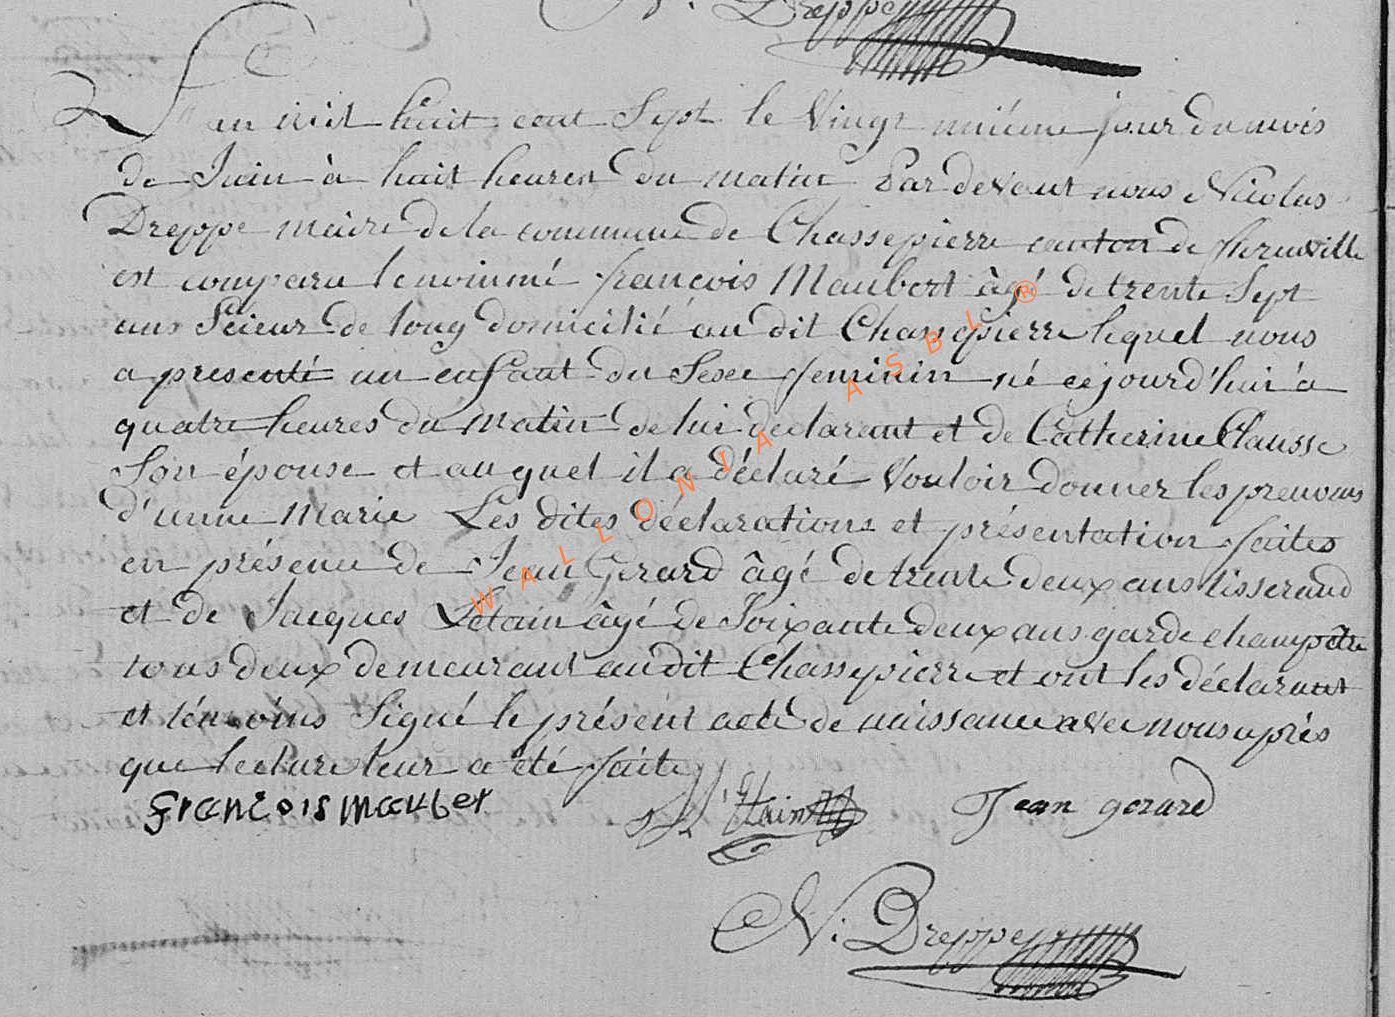 N. Dreppe
L'an mil huit cent Sept le Vingt unième jour du mois
de Juin à huit heures du matin Par devant nous Nicolas
Dreppe maire de la commune de Chassepierre canton de florenville
est comparu le nommé françois Maubert âgé de trente Sept
ans Scieur de long domicilié au dit Chassepierre lequel nous
a presenté un enfant du Sexe feminin né cejourd'hui à
quatre heures du matin de lui declarant et de Catherine Clausse
Son épouse et auquel il a déclaré Vouloir donner les prenoms
d'anne Marie Les dites déclarations et présentation faites
en présence de Jean Gerard âgé de trente deux ans tisserand
et de Jacques Letain âgé de Soixante deux ans garde champêtre
tous deux demeurant audit Chassepierre et ont les déclarant
et témoins Signé le présent acte de naissance avec nous après
que lecture leur a été faite
françois mauber J l'Etain Jean gerard
N. Dreppe
WALLONIA ASBL ®